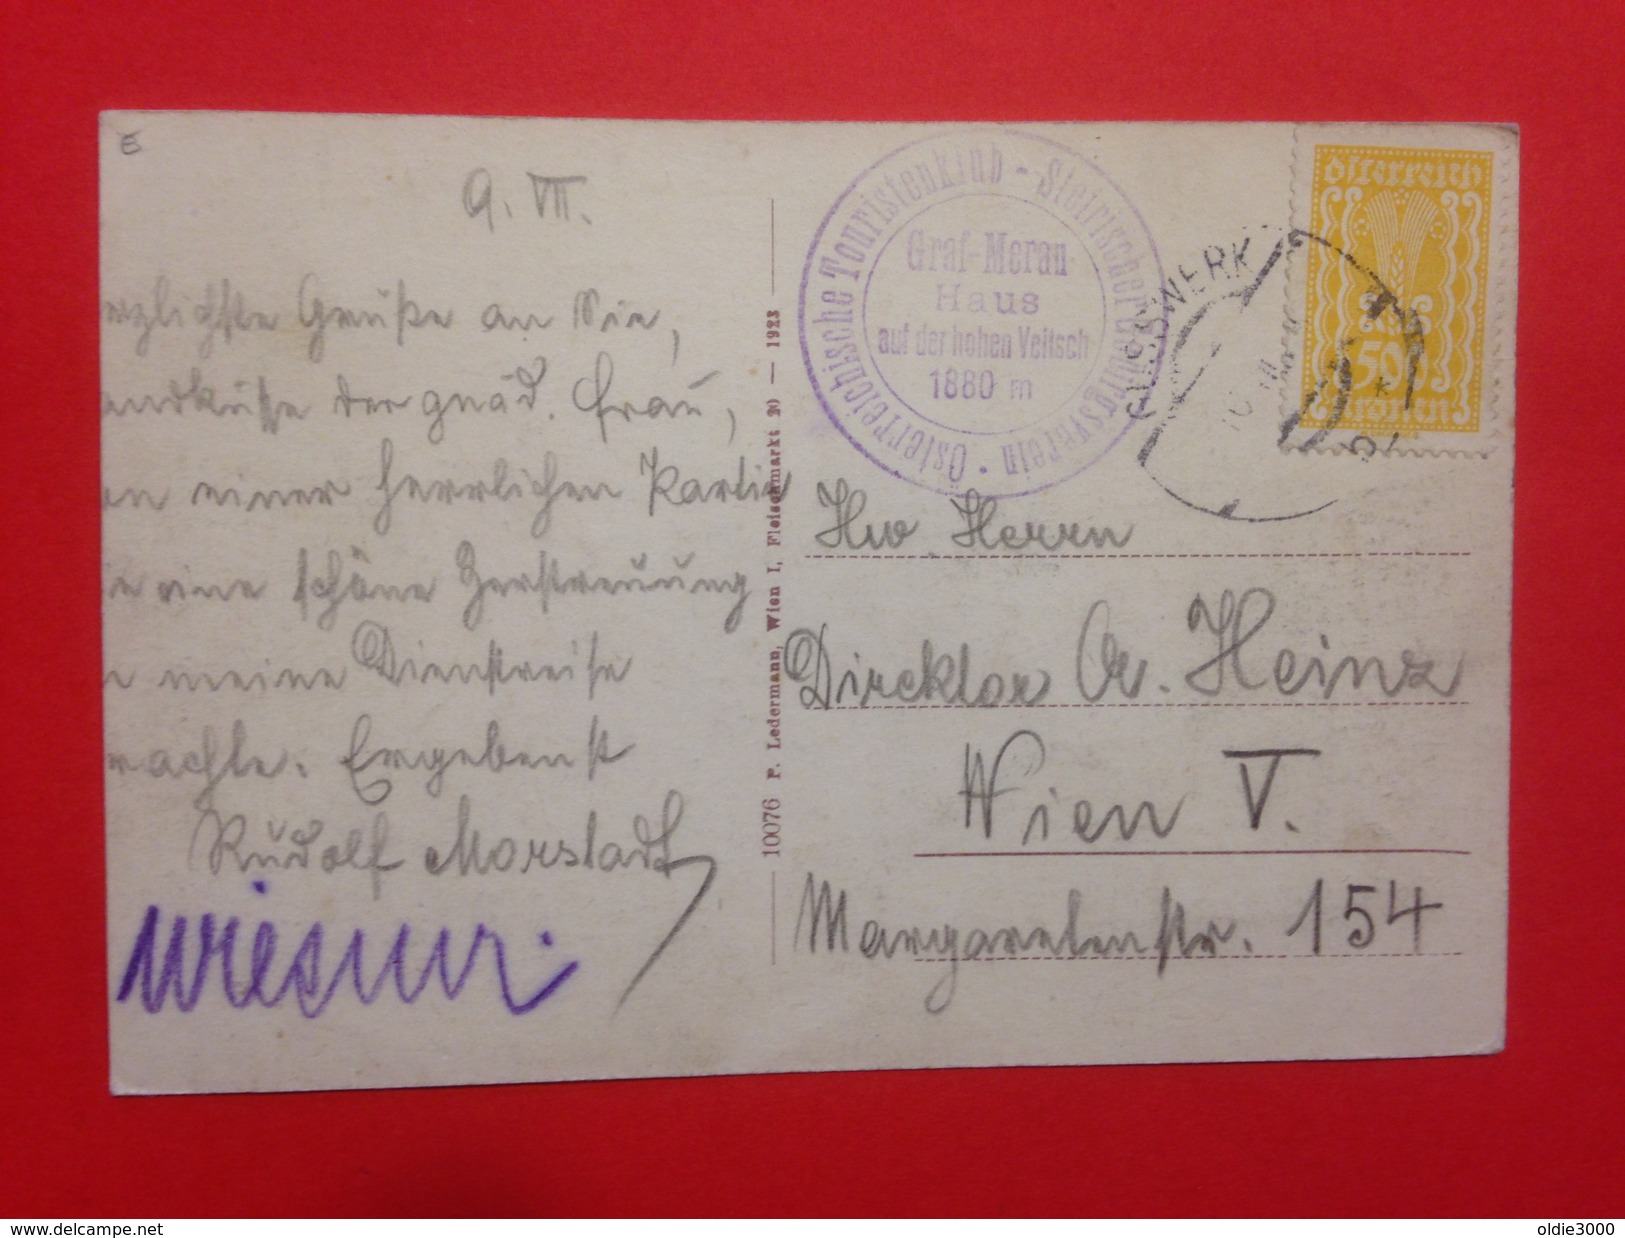 E
9. VII.
erzlichste Grüße an Sie,
andküsse der gnäd. Frau,
on einer herrlichen Partie
ie eine schöne Zerstreuung
meine Dienstreise
rachte. Ergebenst
Rudolf Morstadt
10076 P. Ledermann, Wien I, Fleischmarkt 20 — 1923
Österreichische Touristenklub - Steirischer Gebirgsverein ·
Graf-Meran
Haus
auf der hohen Veitsch
1880 m
Österreich
50
Kronen
Hw. Herrn
Direktor A. Heinz
Wien V.
Margaretenstr. 154
www.delcampe.net
oldie3000